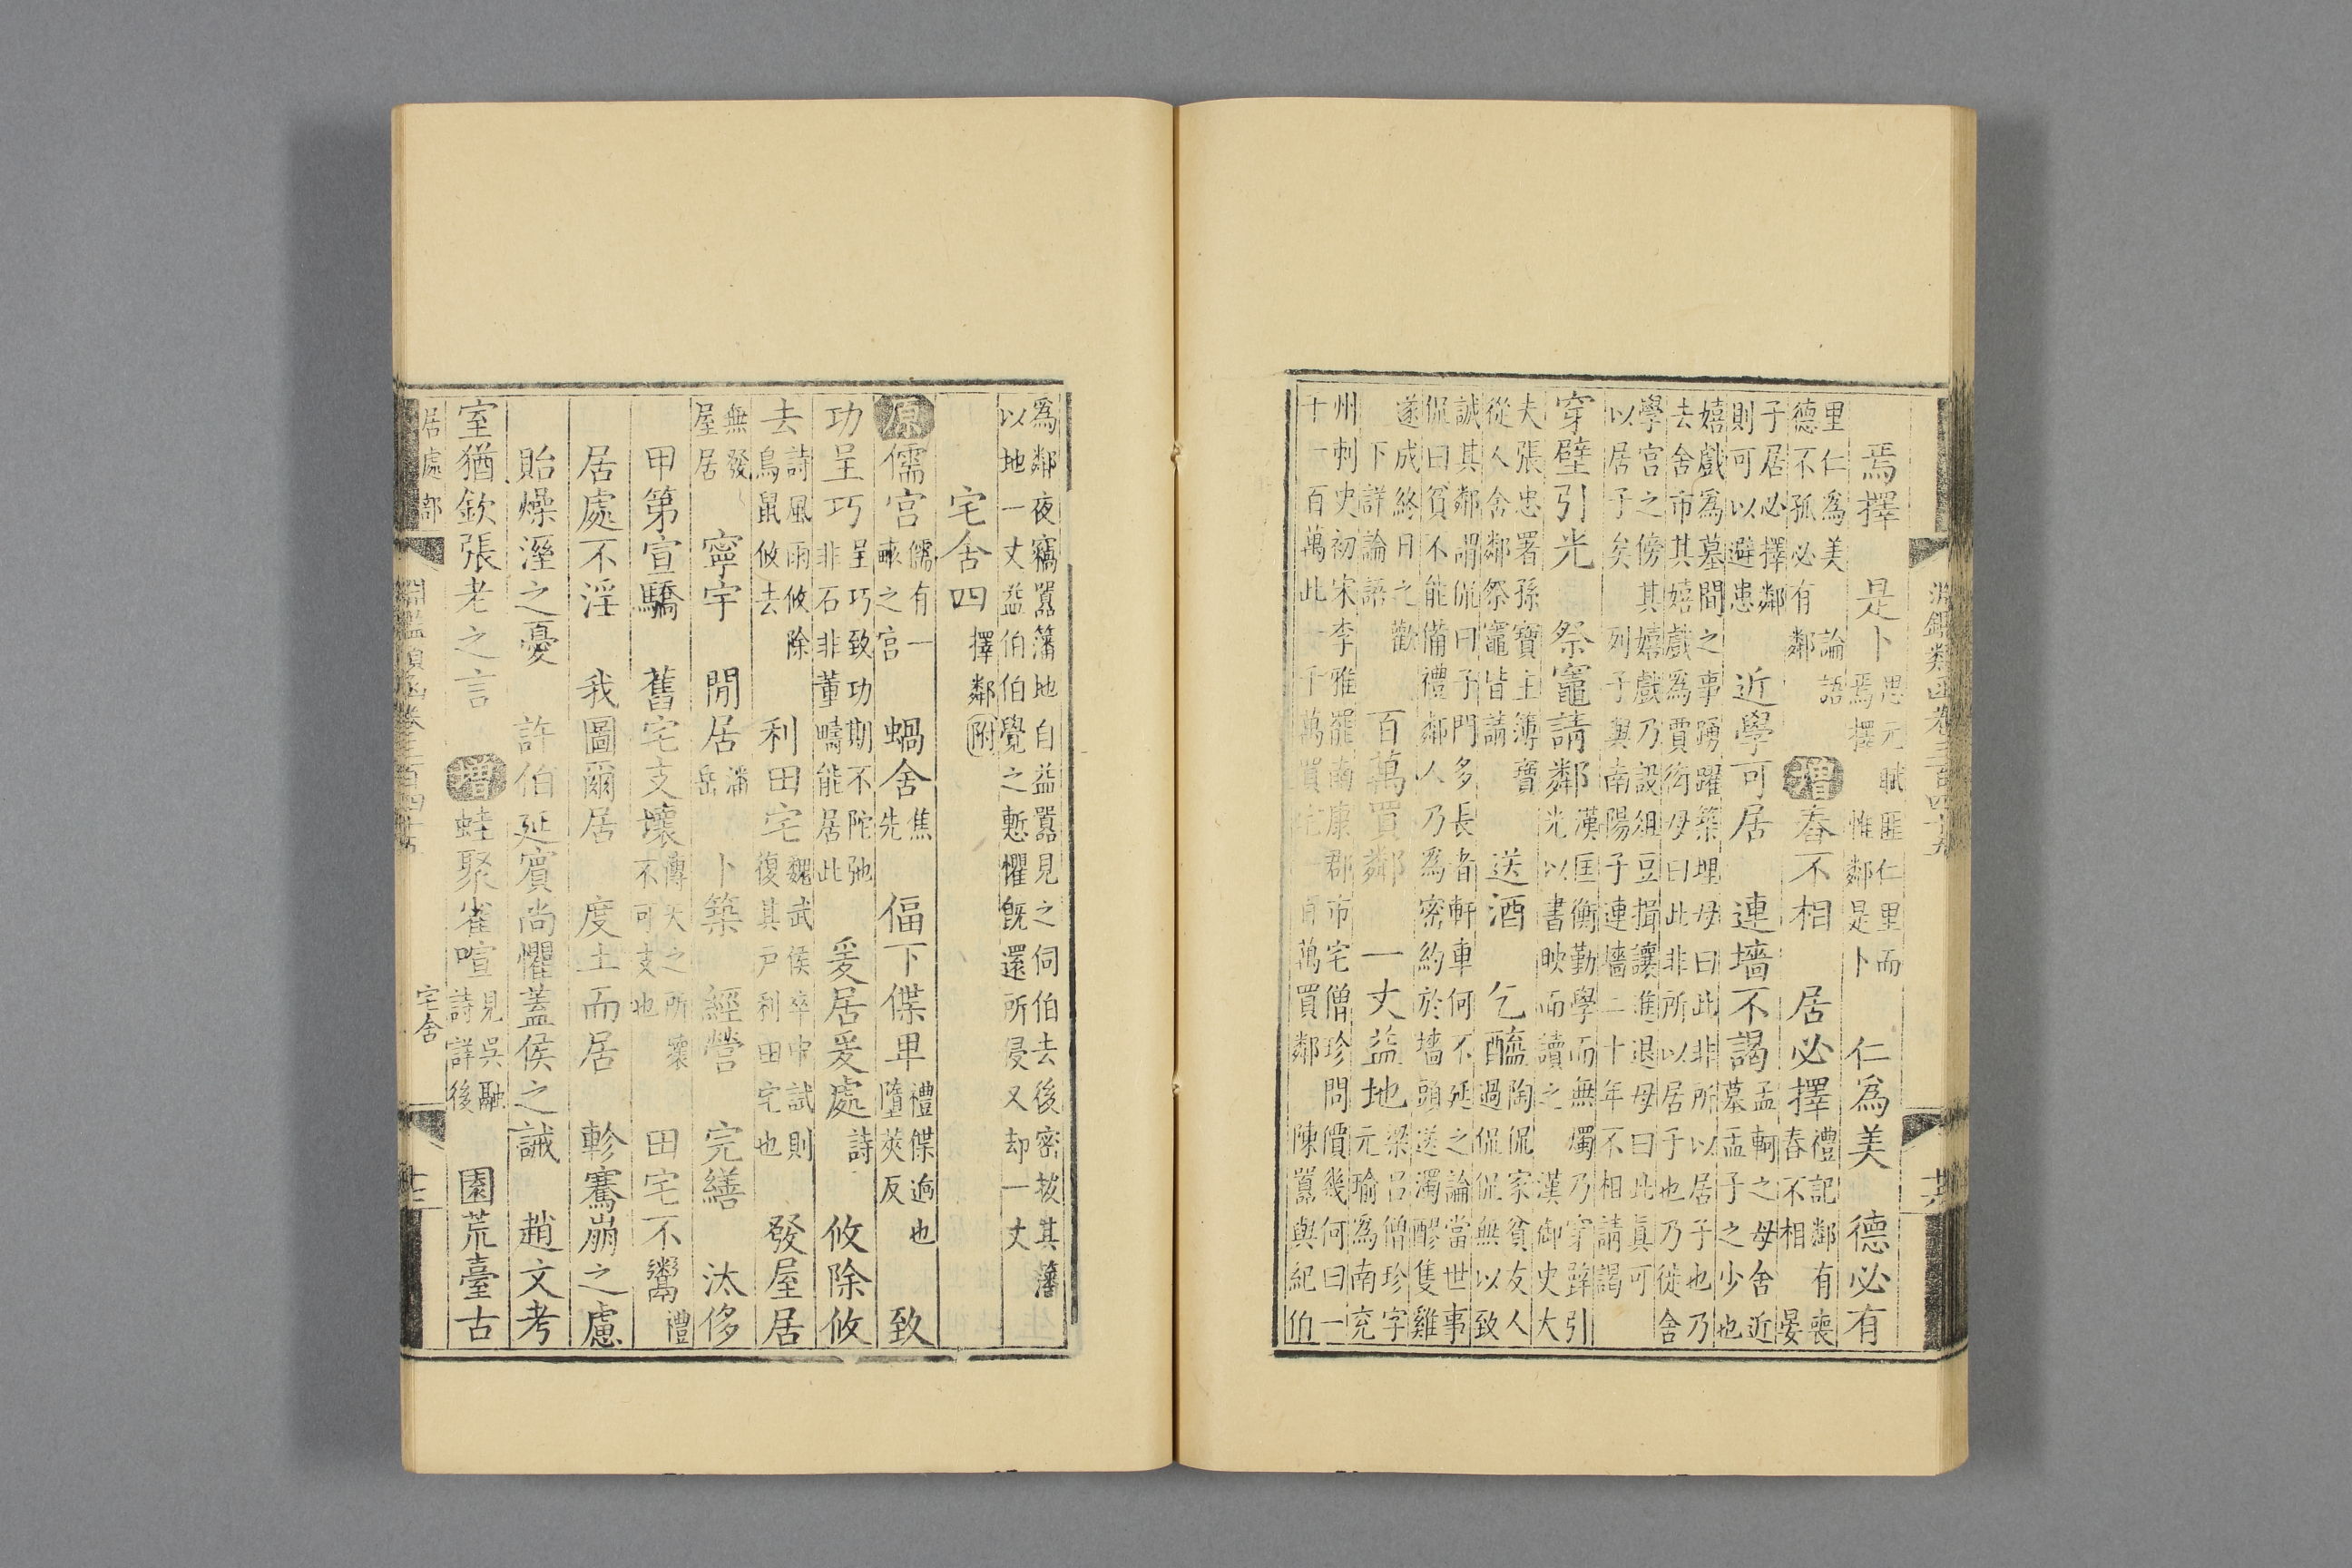 淵鑑類函卷三百四十五
焉擇　是卜　思元賦匪仁里而
焉擇惟鄰是卜　仁爲美　德必有
里仁爲美　論語
德不孤必有鄰　增舂不相　居必擇　禮記鄰有喪
舂不相晏
子居必擇鄰
則可以避患　近學可居　連墻不謁　孟軻之母舍近
墓孟子之少也
嬉戲爲墓間之事踴躍築埋母曰此非所以居子也乃
去舍市其嬉戲爲賈衒母曰此非所以居子也乃徙舍
學宮之傍其嬉戲乃設俎豆揖讓進退母曰此眞可
以居子矣　列子與南陽子連墻二十年不相請謁
穿壁引光　祭竈請鄰　漢匡衡勤學而無燭乃穿壁引
光以書映而讀之　漢御史大
夫張忠署孫寶主簿寶
從人舍鄰祭竈皆請　送酒　乞醯　陶侃家貧友人
過侃侃無以致
誠其鄰謂侃曰子門多長者軒車何不延之論當世事
侃曰貧不能備禮鄰人乃爲密約於墻頭送濁醪隻雞
遂成終日之歡
下詳論語　百萬買鄰　一丈益地　梁呂僧珍字
元瑜爲南兗
州刺史初宋季雅罷南康郡市宅僧珍問價幾何曰一
十一百萬此一千萬買宅一百萬買鄰　陳囂與紀伯
爲鄰夜竊囂藩地自益囂見之伺伯去後密拔其藩
以地一丈益伯伯覺之慙懼旣還所侵又却一丈
宅舍四　擇鄰附
原儒宮　儒有一
畝之宮　蝸舍　焦
先　偪下偞卑　禮偞迫也
墮莢反　致
功呈巧　呈巧致功期不陀弛
非石非董疇能居此　爰居爰處　詩　攸除攸
去　詩風雨攸除
鳥鼠攸去　利田宅　魏武侯卒中試則
復其戶利田宅也　發屋居
無發
屋居　寧宇　閒居　潘
岳　卜築　經營　完繕　汰侈
甲第宣驕　舊宅支壞　傳天之所壞
不可支也　田宅不鬻　禮
居處不淫　我圖爾居　度土而居　軫騫崩之慮
貽燥溼之憂　許伯延賓尚懼蓋侯之誡　趙文考
室猶欽張老之言　增蛙聚雀喧　見吳融
詩詳後　園荒臺古
居處部　淵鑑類函卷三百四十五　宅舍